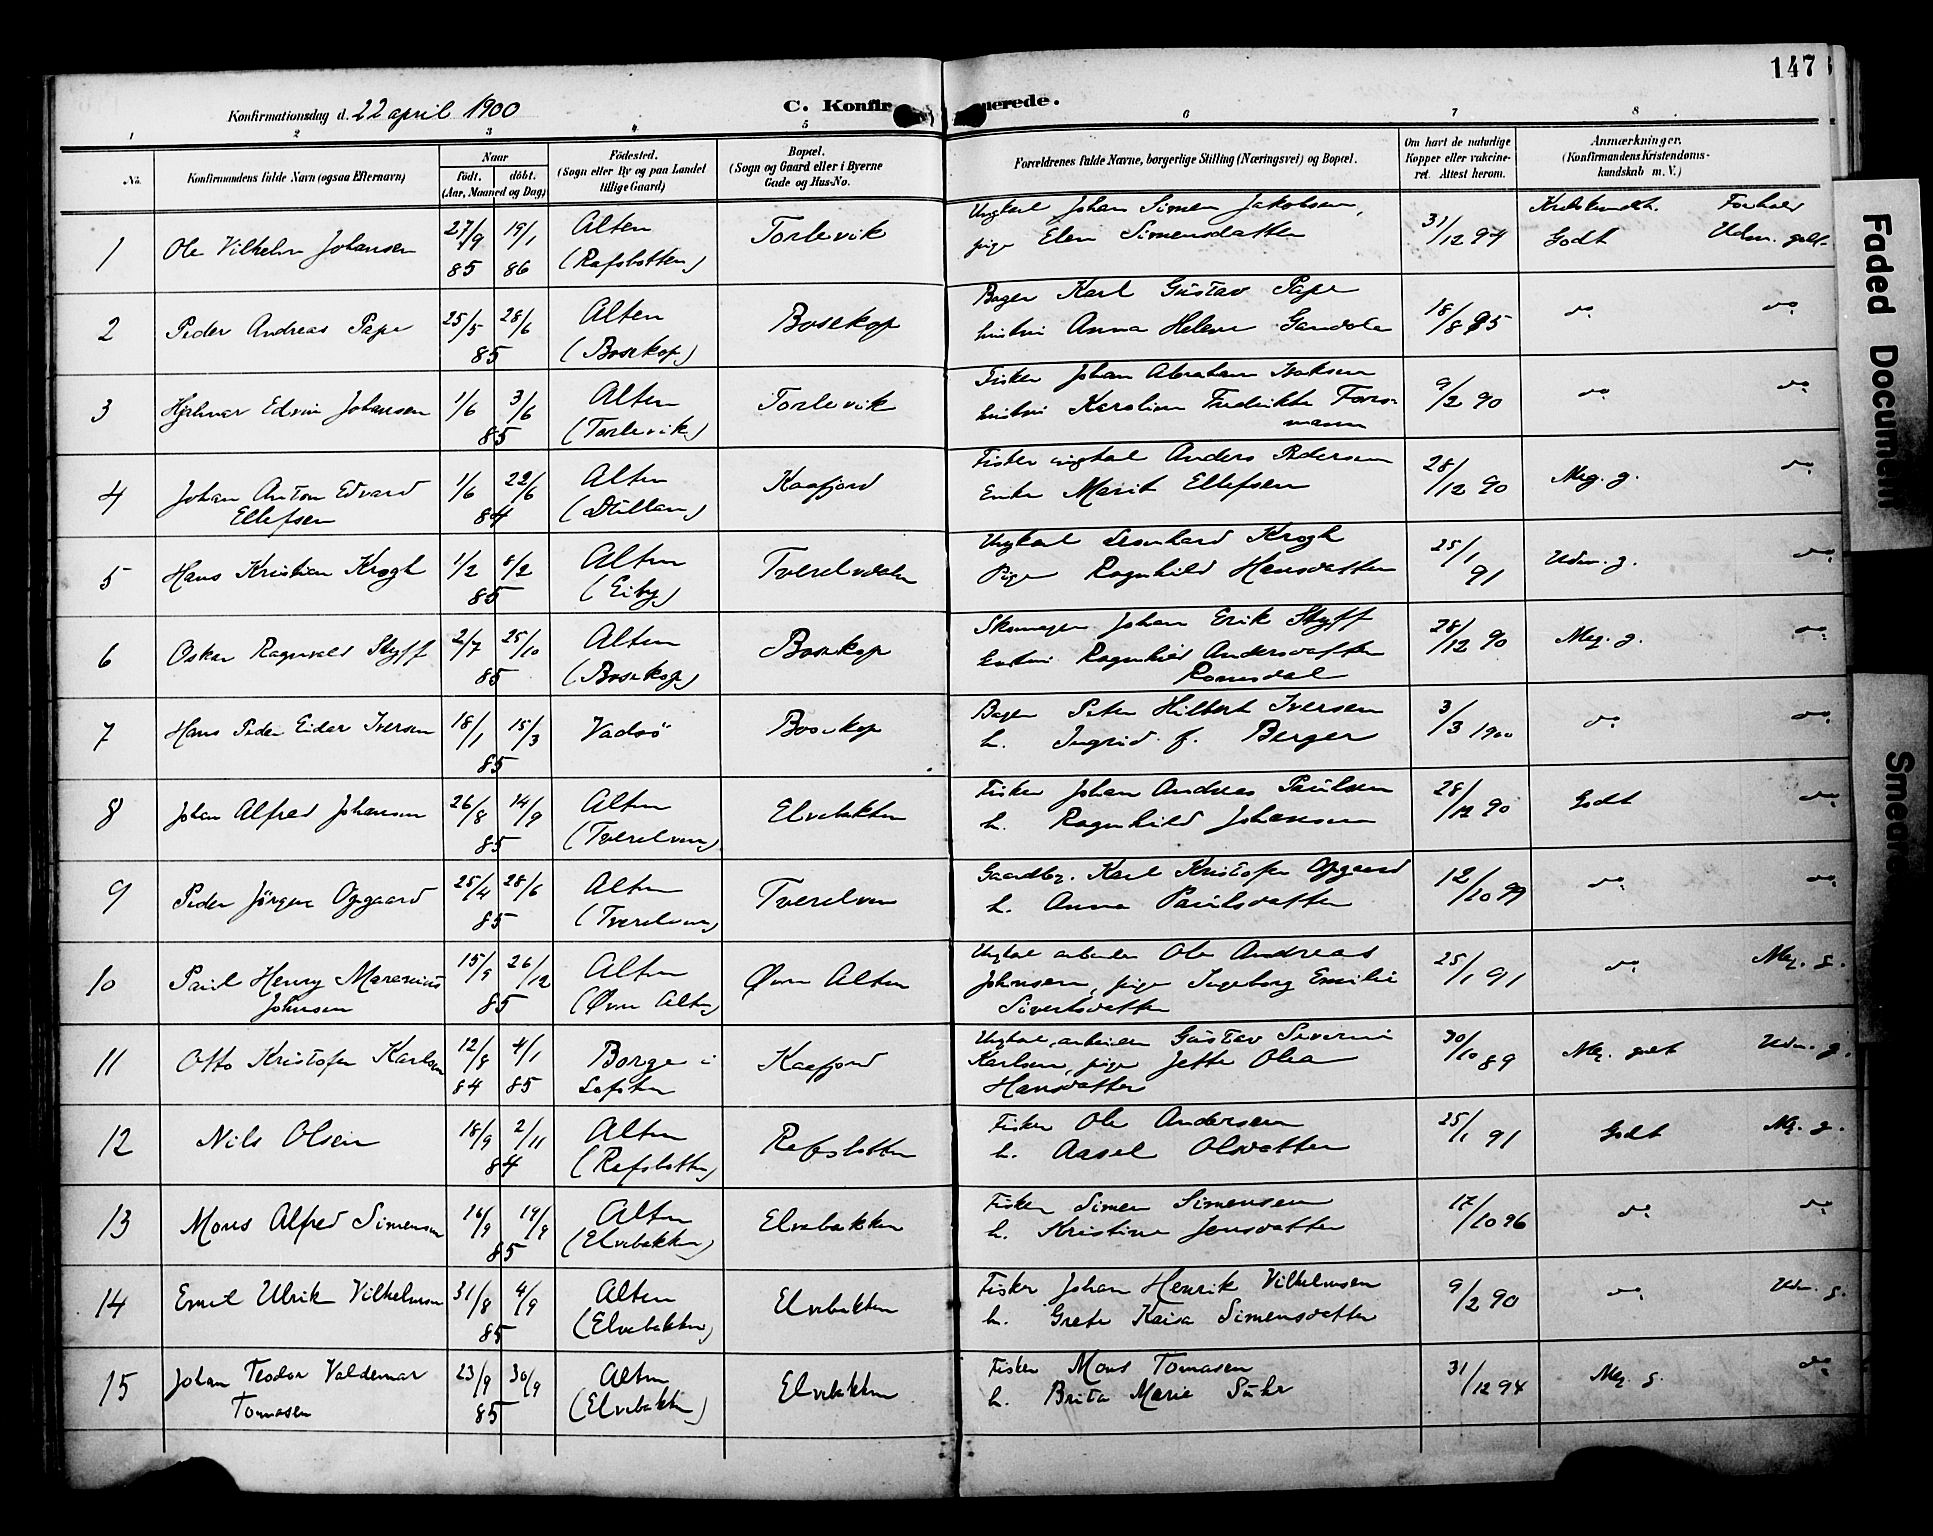 147
Konfirmationsdag d. 22 april 1900
C. Konfirmerede.
1 2 3 4 5 6 7 8
No.
Konfirmandens fulde Navn (ogsaa Efternavn)
Naar
født. døbt.
(Aar, Maaned og Dag)
Fødested.
(Sogn eller By og paa Landet
tillige Gaard)
Bopæl.
(Sogn og Gaard eller i Byerne
Gade og Hus-No.
Forældrenes fulde Navne, borgerlige Stilling (Næringsvei) og Bopæl.
Om havt de naturlige
Kopper eller vaccine-
ret. Attest herom.
Anmærkninger.
(Konfirmandens Kristendoms-
kundskab m. V.)
1 Ole Vilhelm Johansen 27/9 85 19/1 86 Alten (Rafsbotten) Torlevik
Ungkarl Johan Simon Jakobsen,
pige Elen Simensdatter
31/12 94 Godt Forhold Udm. godt
2 Peder Andreas Pape 25/5 28/6 85 Alten (Bosekop) Bosekop
Bager Karl Gustav Pape
hustru Anna Helene Gamdola
18/8 95 do. do.
3 Hjalmar Edvin Johansen 1/6 3/6 85 Alten (Torlevik) Torlevik
Fisker Johan Abraham Isaksen
hustru Karoline Fredrikke Fors-
mann
9/2 90 do. do.
4 Johan Anton Edvard
Ellefsen 1/6 22/6 84 Alten Kaafjord
Fisker ungkarl Anders Pedersen
Enke Marit Ellefsen
28/12 90 Meg. g. do.
5 Hans Kristian Krogh 1/2 8/2 85 Alten (Eiby) Tverelvdalen
Ungkarl Leonhard Krogh
Pige Ragnhild Hansdatter
25/1 91 Udm. g. do.
6 Oskar Ragnvald Styff 2/7 25/10 85 Alten (Bosekop) Bosekop
Skomager Johan Erik Styff
hustru Ragnhild Andersdatter
Romsdal
28/12 90 Meg. g. do.
7 Hans Peder Eidar Iversen 18/1 15/3 85 Vadsö Bosekop
Bager Peter Hilbert Iversen
h. Ingrid f. Berger
3/3 1900 do. do.
8 Johan Alfred Johansen 26/8 14/9 85 Alten (Tverelven) Elvebakken
Fisker Johan Andreas Paulsen
h. Ragnhild Johansen
28/12 90 Godt do.
9 Peder Jörgen Opgaard 25/4 28/6 85 Alten (Tverelven) Tverelven
Gaardbr. Karl Kristofer Opgaard
h. Anna Paulsdatter
12/10 99 do. do.
10 Paul Henry Marenius
Johnsen 15/9 26/12 85 Alten (Øvre Alten) Øvre Alten
Ungkarl arbeider Ole Andreas
Johnsen, pige Ingeborg Emilie
Sivertsdatter
25/1 91 do. Meg. g.
11 Otto Kristofer Karlsen 12/8 84 4/1 85 Borge i Lofoten Kaafjord
Ungkarl, arbeider Gustav Severin
Karlsen, pige Jette Olea
Hansdatter
30/10 89 Meg. godt Udm. g.
12 Nils Olsen 18/9 2/11 84 Alten (Rafsbotten) Rafsbotten
Fisker Ole Andersen
h. Aasel Olsdatter
25/1 91 Godt Meg. g.
13 Mons Alfred Simensen 16/9 19/9 85 Alten (Elvebakken) Elvebakken
Fisker Simen Simensen
h. Kristine Jensdatter
17/10 96 do. do.
14 Emil Ulrik Vilhelmsen 31/8 4/9 85 Alten (Elvebakken) Elvebakken
Fisker Johan Henrik Vilhelmsen
h. Grete Kaisa Simensdatter
9/2 90 do. Udm. g.
15 Johan Teodor Valdemar
Tomasen 23/9 30/9 85 Alten (Elvebakken) Elvebakken
Fisker Mons Tomasen
h. Brita Marie Suhr
31/12 94 Meg. g. do.
Faded Document
Smeared